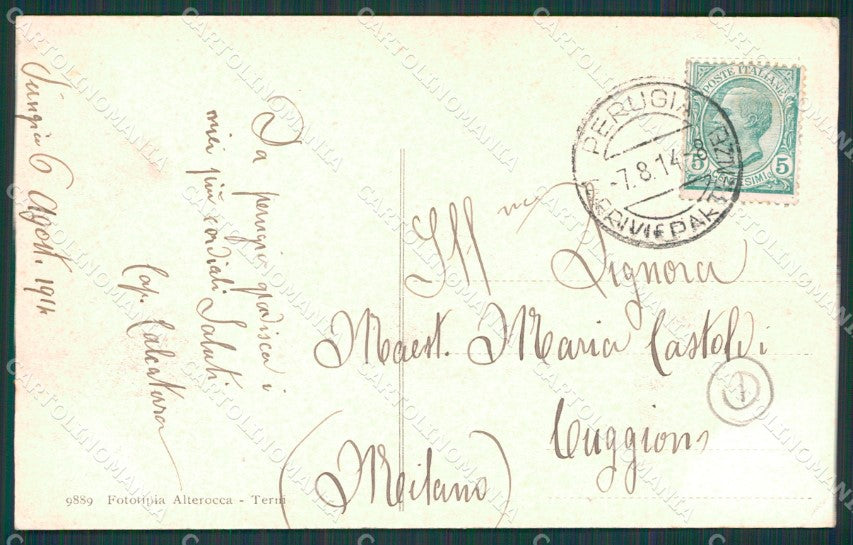 Perugia 6 Agost. 1914
Da perugia gradisca i
miei più cordiali Saluti
Cap. Calcaterra
Ill ma Signora
Maest. Maria Castoldi
Cuggiono
(Milano)
POSTE ITALIANE
5 CENTESIMI 5
PERUGIA
-7.8.14-8
9889 Fototipia Alterocca - Terni
1
CARTOLINOMANIA